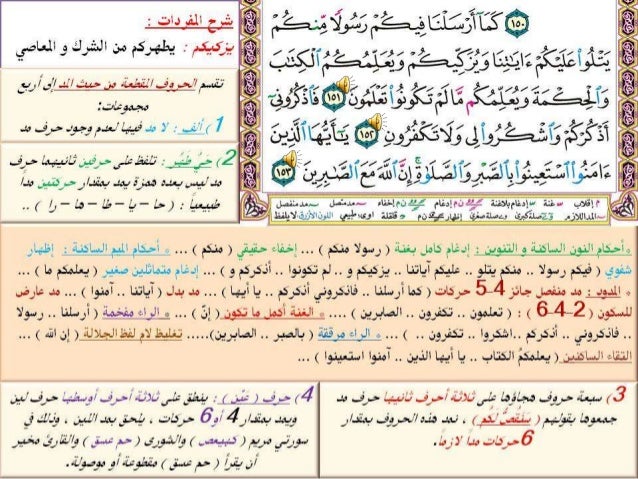 شرح المفردات :
يزكيكم : يطهركم من الشرك و المعاصي
تقسم الحروف المقطعة من حيث المد إلى أربع
مجموعات:
1) ألف : لا مد فيها لعدم وجود حرف مد
2) حَيٌّ طَهُرَ : تلفظ على حرفين ثانيهما حرف
مد ليس بعده همزة يمد بمقدار حركتين مداً
طبيعياً : ( حا – يا – طا – ها – را ) ..
١٥٠ كَمَآ أَرْسَلْنَا فِيكُمْ رَسُولًا مِّنكُمْ
يَتْلُوا۟ عَلَيْكُمْ ءَايَٰتِنَا وَيُزَكِّيكُمْ وَيُعَلِّمُكُمُ ٱلْكِتَٰبَ
وَٱلْحِكْمَةَ وَيُعَلِّمُكُم مَّا لَمْ تَكُونُوا۟ تَعْلَمُونَ ١٥١ فَٱذْكُرُونِىٓ
أَذْكُرْكُمْ وَٱشْكُرُوا۟ لِى وَلَا تَكْفُرُونِ ١٥٢ يَٰٓأَيُّهَا ٱلَّذِينَ
ءَامَنُوا۟ ٱسْتَعِينُوا۟ بِٱلصَّبْرِ وَٱلصَّلَوٰةِ إِنَّ ٱللَّهَ مَعَ ٱلصَّٰبِرِينَ ١٥٣
*أحكام النون الساكنة و التنوين : إدغام كامل بغنة ( رسولا منكم ) ... إخفاء حقيقي ( منكم ) ... * أحكام الميم الساكنة : إظهار
شفوي ( فيكم رسولا .. منكم يتلو .. عليكم آياتنا .. يزكيكم و .. لم تكونوا .. أذكركم و ) ... إدغام متماثلين صغير ( يعلمكم ما ) ...
* المدود : مد منفصل جائز 4–5 حركات ( كما أرسلنا .. فاذكروني أذكركم .. يا أيها ) ... مد بدل ( آياتنا .. آمنوا ) ... مد عارض
للسكون ( 2–4–6 ) : ( تعلمون .. تكفرون .. الصابرين ) .... * الغنة أكمل ما تكون ( إنّ ) ... * الراء مفخمة ( أرسلنا .. رسولا
.. فاذكروني .. أذكركم ..اشكروا .. تكفرون .. ) ... * الراء مرققة ( بالصبر .. الصابرين)..... تغليظ لام لفظ الجلالة ( إن الله ) ...
التقاء الساكنين ( يعلمكمُ الكتاب .. يا أيها الذين .. آمنوا استعينوا ) ...
3) سبعة حروف هجاؤها على ثلاثة أحرف ثانيها حرف مد
جمعوها بقولهم ( سَنَقُصُّ لَكُم ) ، تمد هذه الحروف بمقدار
6حركات مداً لازماً.
4) حرف ( عَيْن ) : ينطق على ثلاثة أحرف أوسطها حرف لين
ويمد بمقدار 4 أو6 حركات ، يلحق بمد اللين ، وذلك في
سورتي مريم ( كهيعص ) والشورى ( حم عسق ) والقارئ مخير
أن يقرأ ( حم عسق ) مقطوعة أو موصولة.